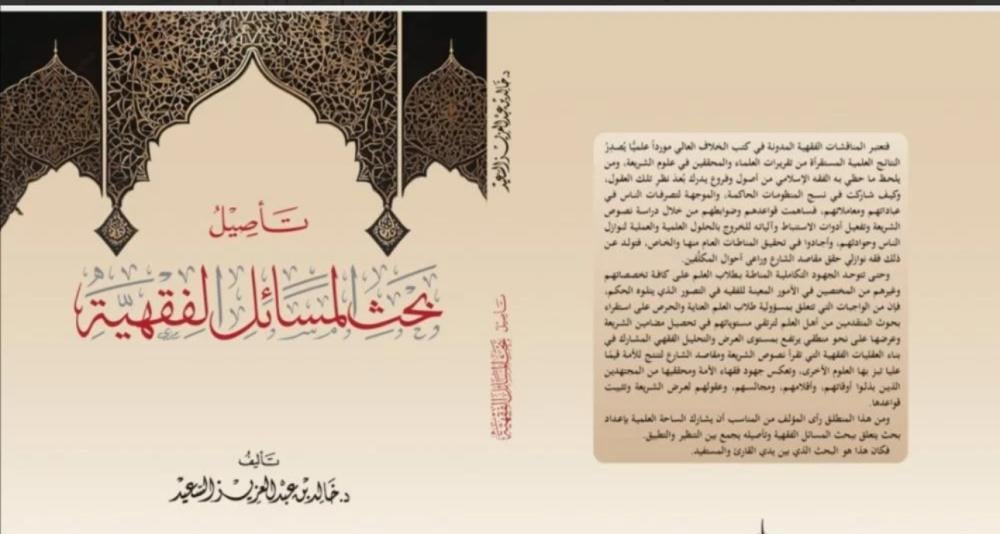 تأصيل
بحث المسائل الفقهية
تأليف
د. خالد بن عبد العزيز السعيد
د. خالد بن عبد العزيز السعيد
تأصيل بحث المسائل الفقهية
فتعتبر المناقشات الفقهية المدونة في كتب الخلاف العالي مورداً علميًّا يُصدِرُ
النتائج العلمية المستقرأة من تقريرات العلماء والمحققين في علوم الشريعة، ومن
يلحظ ما حظي به الفقه الإسلامي من أصول وفروع يدرك بعدَ نظرِ تلك العقول،
وكيف شاركت في نسج المنظومات الحاكمة، والموجهة لتصرفات الناس في
عباداتهم ومعاملاتهم، فساهمت قواعدهم وضوابطهم من خلال دراسة نصوص
الشريعة وتفعيل أدوات الاستنباط وآلياته للخروج بالحلول العلمية والعملية لنوازل
الناس وحوادثهم، وأجادوا في تحقيق المناطات العام منها والخاص، فتولد عن
ذلك فقه نوازلي حقق مقاصد الشارع وراعى أحوال المكلَّفين.
وحتى تتوحد الجهود التكاملية المناطة بطلاب العلم على كافة تخصصاتهم
وغيرهم من المختصين في الأمور المعينة للفقيه في التصور الذي يتلوه الحكم،
فإن من الواجبات التي تتعلق بمسؤولية طلاب العلم العناية والحرص على استقراء
بحوث المتقدمين من أهل العلم لترتقي مستوياتهم في تحصيل مضامين الشريعة
وعرضها على نحو منطقي يرتفع بمستوى العرض والتحليل الفقهي المشارك في
بناء العقليات الفقهية التي تقرأ نصوص الشريعة ومقاصد الشارع لتنتج للأمة قيمًا
عليا تبز بها العلوم الأخرى، وتعكس جهود فقهاء الأمة ومحققيها من المجتهدين
الذين بذلوا أوقاتهم، وأقلامهم، ومجالسهم، وعقولهم لعرض الشريعة وتثبيت
قواعدها.
ومن هذا المنطلق رأى المؤلف من المناسب أن يشارك الساحة العلمية بإعداد
بحث يتعلق ببحث المسائل الفقهية وتأصيله يجمع بين التنظير والتطبيق.
فكان هذا هو البحث الذي بين يدي القارئ والمستفيد.